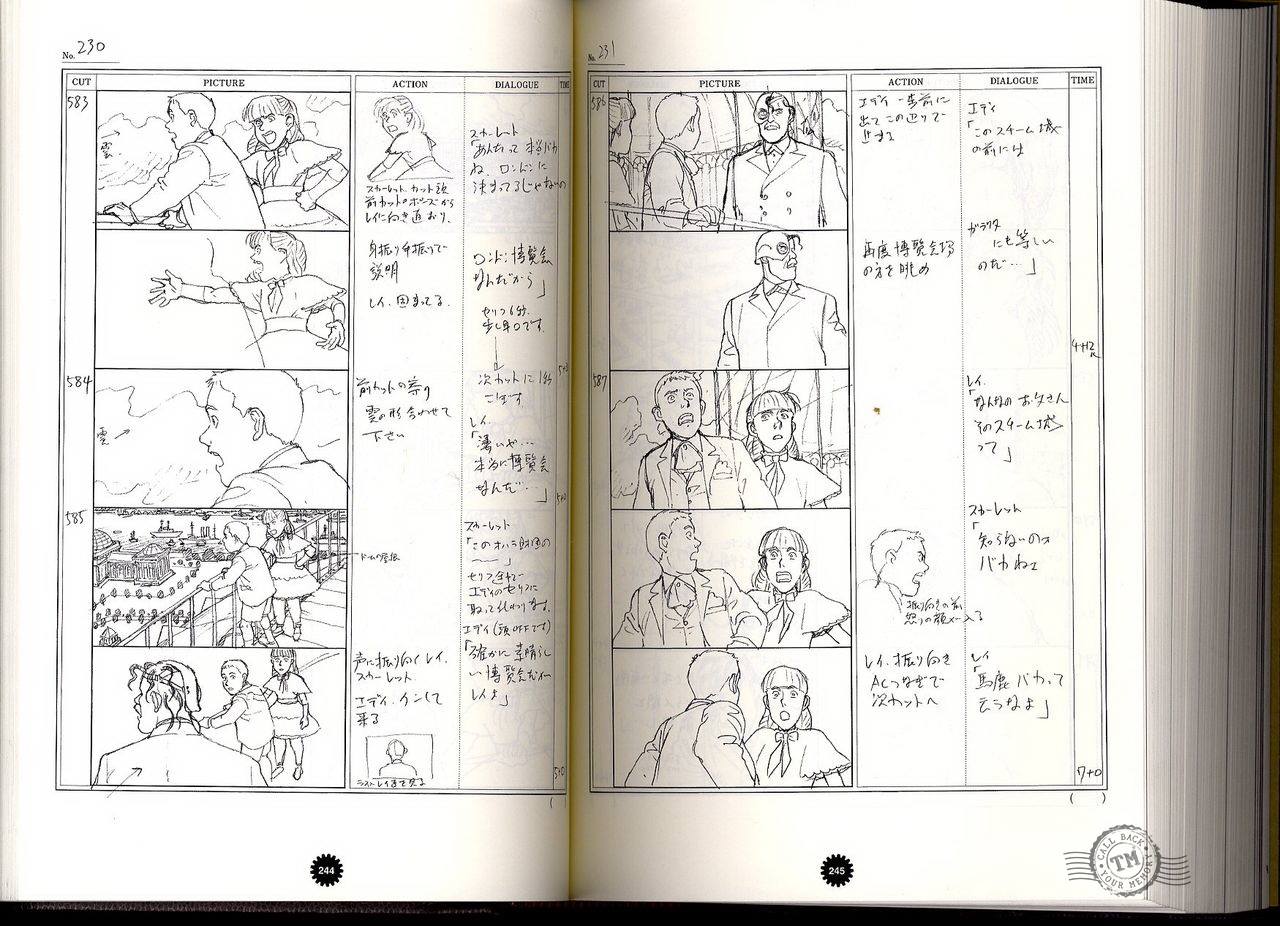 No. 230
CUT
PICTURE
ACTION
DIALOGUE
TIME
583
雲
スカーレット カット頭
前カットのポーズから
レイに向き直おり、
スカーレット
「あんたって 本当バカ
ね、ロンドンに
決まってるじゃないの
身振り手振りで
説明
レイ、固まってる、
ロンドン博覧会
なんだから」
セリフ6秒、
次カットに1秒
こぼす
584
雲
前カットの寄り
雲の形合わせて
下さい
レイ
「凄いや…
本当に博覧会
なんだ…」
585
ドームの屋根
スカーレット
「このオハラ財団の
〜〜」
セリフ途中で
エディのセリフに
取って代わります、
エディ(頭OFFです)
「確かに素晴らし
い博覧会だね
レイよ」
声に振り向くレイ、
スカーレット
エディ、ケンして
来る
5+0
244
No. 231
CUT
PICTURE
ACTION
DIALOGUE
TIME
586
エディ 一歩前に
出てこの辺りで
止まる
エディ
「このスチーム城
の前には
再度博覧会場
の方を眺め
ガラクタ
にも等しい
のだ…」
4+12
587
レイ
「なんなの お父さん
そのスチーム城
って」
スカーレット
「知らないのォ
バカねェ
振り向きの前
怒りの顔〆一入る
レイ、振り向き
ACつなぎで
次カットへ
レイ
「馬鹿バカって
云うなよ」
7+0
( )
245
CALL BACK
TM
YOUR MEMORY